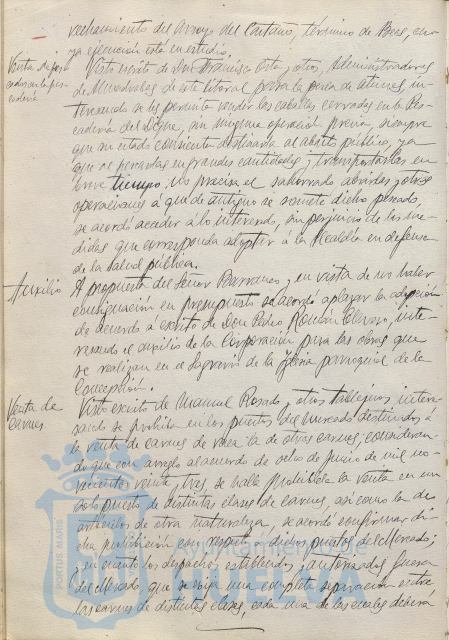 vechamiento del Arroyo del Castaño, término de Beas, cu-
ya ejecución está en estudio.
Venta de pes-
cados en la pes-
cadería
Visto escrito de Don Francisco Orta y otros, Administradores
de Almadrabas de este litoral para la pesca de atunes, in-
teresando se les permita vender las caballas cerradas en la Pes-
cadería del Dique, sin ninguna operación previa, siempre
que su estado consienta destinarla al abasto público, ya
que al pescarlas en grandes cantidades y transportarlas en
breve tiempo no precisa el salmorrado abrirlas y otras
operaciones a que de antiguo se somete dicho pescado,
se acordó acceder á lo interesado, sin perjuicio de las me-
didas que corresponda adoptar á la Alcaldía en defensa
de la salud pública.
Auxilio
A propuesta del Señor Barranco, y en vista de no haber
consignación en presupuesto se acordó aplazar la adopción
de acuerdo á escrito de Don Pedro Román Clavero, inte-
resando el auxilio de la Corporación para las obras que
se realizan en el Sagrario de la Iglesia parroquial de la
Concepción.
Venta de
carnes
Visto escrito de Manuel Rosado y otros tablajeros intere-
sando se prohiba en los puestos del mercado destinados á
la venta de carnes de vaca la de otras carnes; consideran-
do que con arreglo al acuerdo de ocho de Junio de mil no-
vecientos veinte y tres, se halla prohibida la venta en un
solo puesto de distintas clases de carnes, así como la de
artículos de otra naturaleza, se acordó confirmar di-
cha prohibición con respecto a dichos puestos del Mercado;
y en cuanto los despachos establecidos y autorizados fuera
del Mercado, que se exija una completa separación entre
las carnes de distintas clases, cada una de las cuales deberá
PORTUS MARIS
Ayuntamiento de
HUELVA